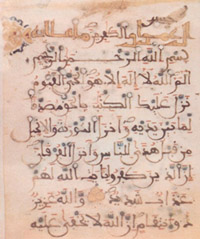 بسم الله الرحمن الرحيم
الم الله لا اله الا هو الحي القيوم
نزل عليك الكتب بالحق مصدقا
لما بين يديه وانزل التورية والانجيل
من قبل هدى للناس وانزل الفرقان
ان الذين كفروا بايت الله لهم
عذاب شديد والله عزيز
ذو انتقام ان الله لا يخفى عليه